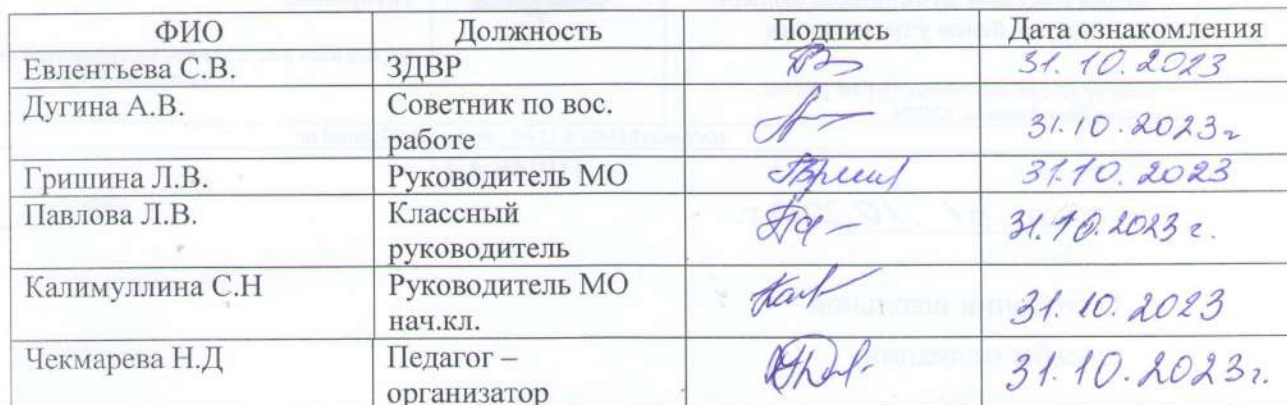 ФИО Должность Подпись Дата ознакомления
Евлентьева С.В. ЗДВР 31.10.2023
Дугина А.В. Советник по вос.
работе 31.10.2023г
Гришина Л.В. Руководитель МО 31.10.2023
Павлова Л.В. Классный
руководитель 31.10.2023 г.
Калимуллина С.Н Руководитель МО
нач.кл. 31.10.2023
Чекмарева Н.Д Педагог –
организатор 31.10.2023г.